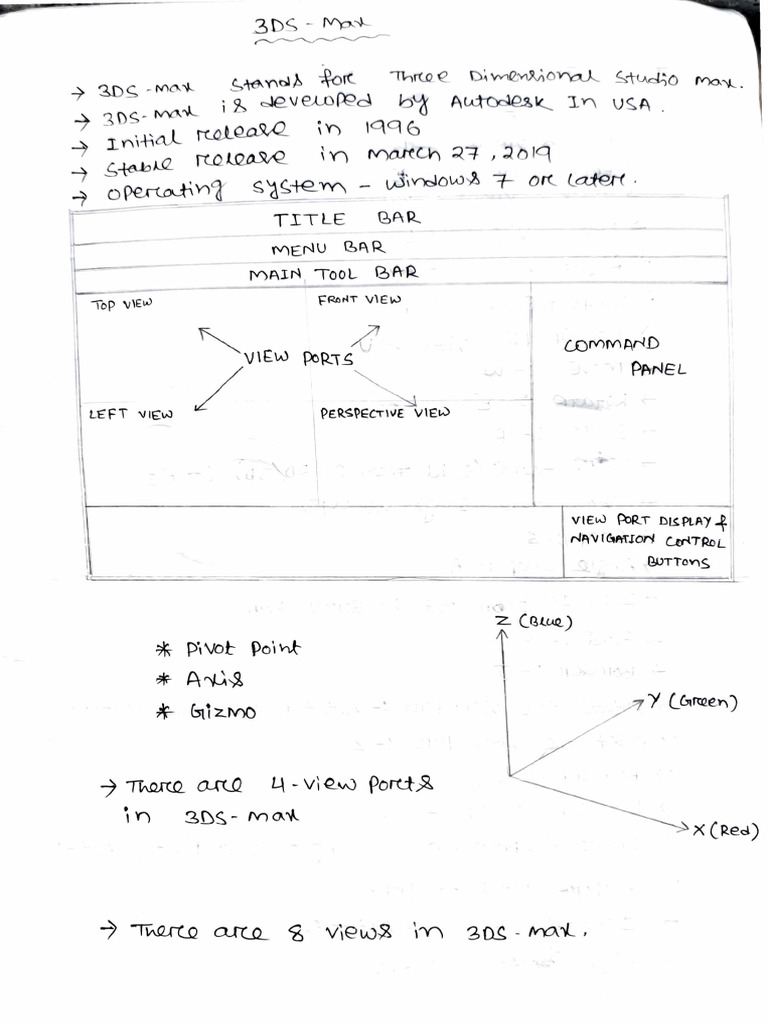 3DS-Max
→ 3DS-max stands for Three Dimensional Studio max.
→ 3DS-max is developed by Autodesk In USA.
→ Initial release in 1996
→ Stable release in march 27, 2019
→ operating system - windows 7 or later.
TITLE BAR
MENU BAR
MAIN TOOL BAR
TOP VIEW
FRONT VIEW
VIEW PORTS
COMMAND
PANEL
LEFT VIEW
PERSPECTIVE VIEW
VIEW PORT DISPLAY &
NAVIGATION CONTROL
BUTTONS
* Pivot Point
* Axis
* Gizmo
Z (Blue)
Y (Green)
X (Red)
→ There are 4-view ports
in 3DS-max
→ There are 8 views in 3DS-max.